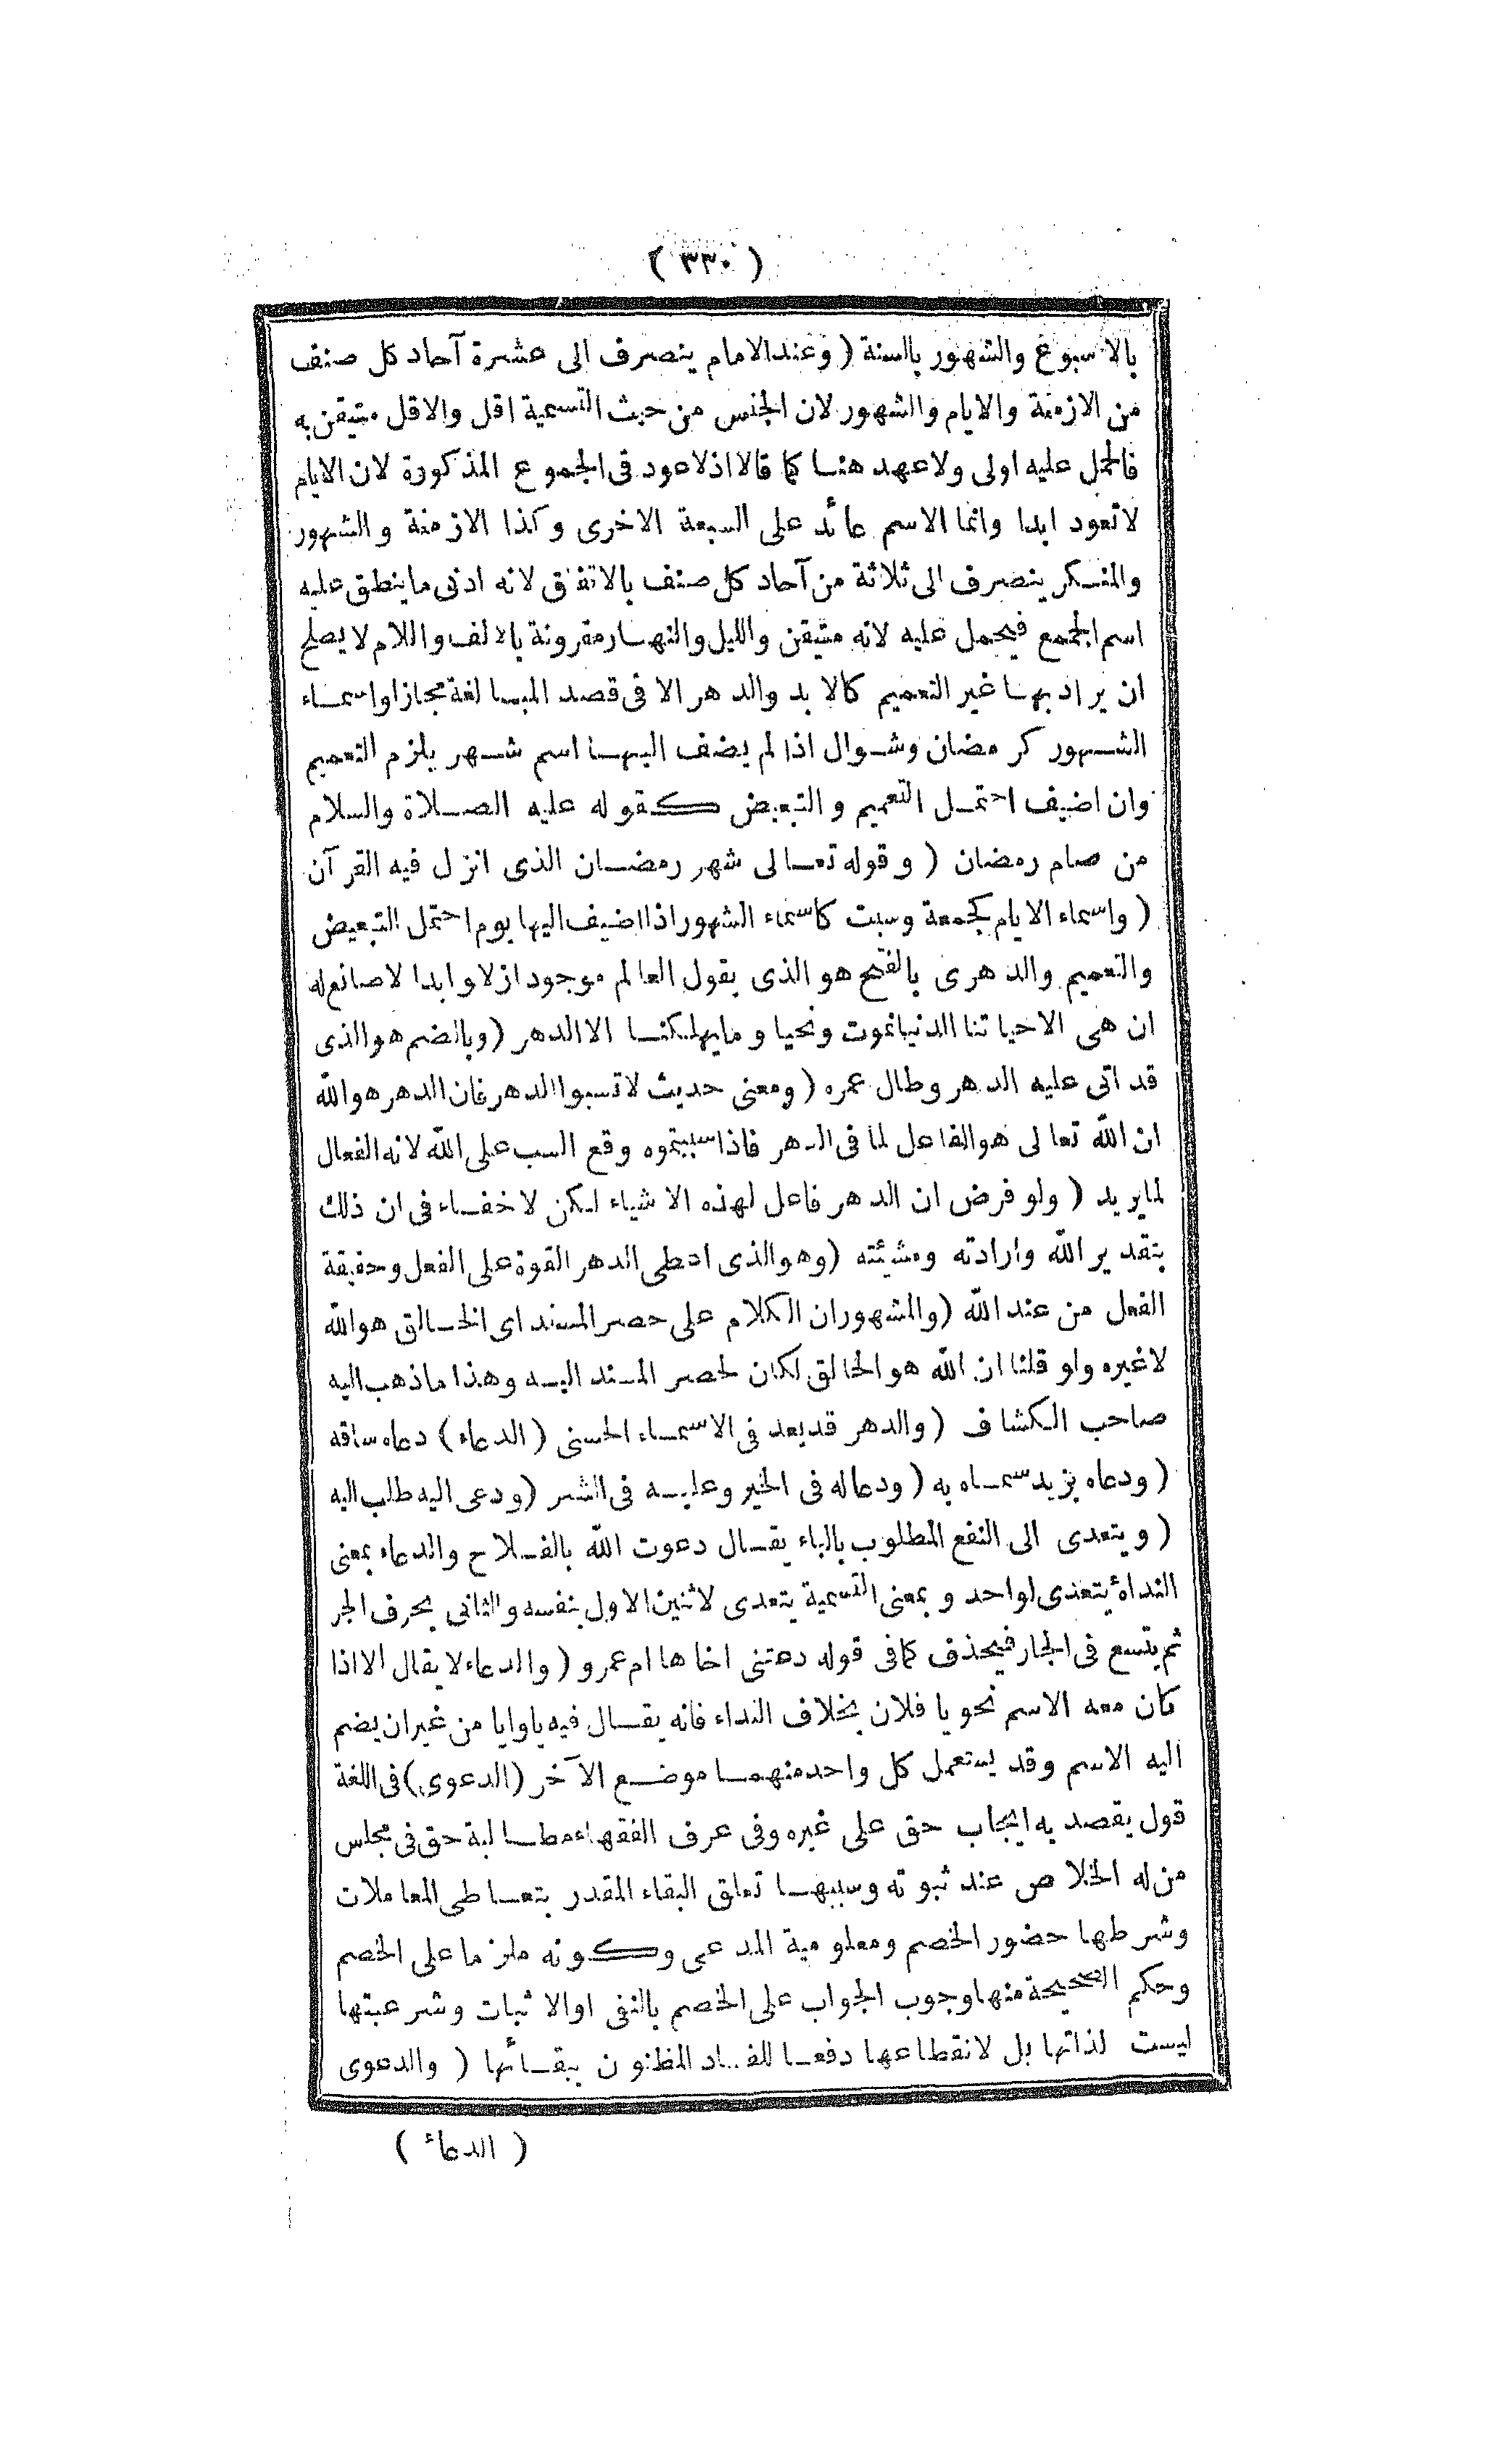 ( ٣٣٠ )
بالاسبوع والشهور بالسنة ( وعند الامام ينصرف الى عشرة آحاد كل صنف
من الازمنة والايام والشهور لان الجنس من حيث التسمية اقل والاقل متيقن به
فالحمل عليه اولى ولا عهد هنا كما قالا اذ لا عود فى الجموع المذكورة لان الايام
لا تعود ابدا وانما الاسم عائد على السبعة الاخرى وكذا الازمنة والشهور
والمنكر ينصرف الى ثلاثة من آحاد كل صنف بالاتفاق لانه ادنى ما ينطق عليه
اسم الجمع فيحمل عليه لانه متيقن والليل والنهار مقرونة بالالف واللام لا يصلح
ان يراد بها غير التعميم كالابد والدهر الا فى قصد المبالغة مجازا واسماء
الشهور كرمضان وشوال اذا لم يضف اليها اسم شهر يلزم التعميم
وان اضيف احتمل التعميم والتبعيض كقوله عليه الصلاة والسلام
من صام رمضان ( وقوله تعالى شهر رمضان الذى انزل فيه القرآن
( واسماء الايام كجمعة وسبت كاسماء الشهور اذا اضيف اليها يوم احتمل التبعيض
والتعميم والدهرى بالفتح هو الذى يقول العالم موجود ازلا وابدا لا صانع له
ان هى الا حياتنا الدنيا نموت ونحيا وما يهلكنا الا الدهر ( وبالضم هو الذى
قد اتى عليه الدهر وطال عمره ( ومعنى حديث لا تسبوا الدهر فان الدهر هو الله
ان الله تعالى هو الفاعل لما فى الدهر فاذا سببتموه وقع السب على الله لانه الفعال
لما يريد ( ولو فرض ان الدهر فاعل لهذه الاشياء لكن لا خفاء فى ان ذلك
بتقدير الله وارادته ومشيئته ( وهو الذى اعطى الدهر القوة على الفعل وحقيقة
الفعل من عند الله ( والمشهور ان الكلام على حصر المسند اى الخالق هو الله
لا غيره ولو قلنا ان الله هو الخالق لكان لحصر المسند اليه وهذا ما ذهب اليه
صاحب الكشاف ( والدهر قد يعد فى الاسماء الحسنى ( الدعاء ) دعاه ساقه
( ودعاه بزيد سماه به ( ودعا له فى الخير وعليه فى الشر ( ودعى اليه طلب اليه
( ويتعدى الى النفع المطلوب بالباء يقال دعوت الله بالفلاح والدعاء بمعنى
النداء يتعدى لواحد وبمعنى التسمية يتعدى لاثنين الاول بنفسه والثانى بحرف الجر
ثم يتسع فى الجار فيحذف كما فى قوله دعتنى اخاها ام عمرو ( والدعاء لا يقال الا اذا
كان معه الاسم نحو يا فلان بخلاف النداء فانه يقال فيه يا وايا من غير ان يضم
اليه الاسم وقد يستعمل كل واحد منهما موضع الآخر ( الدعوى ) فى اللغة
قول يقصد به ايجاب حق على غيره وفى عرف الفقهاء مطالبة حق فى مجلس
من له الخلاص عند ثبوته وسببها تعلق البقاء المقدر بتعاطى المعاملات
وشرطها حضور الخصم ومعلومية المدعى وكونه ملزما على الخصم
وحكم الصحيحة منها وجوب الجواب على الخصم بالنفى او الاثبات وشرعيتها
ليست لذاتها بل لانقطاعها دفعا للفساد المظنون ببقائها ( والدعوى
( الدعاء )